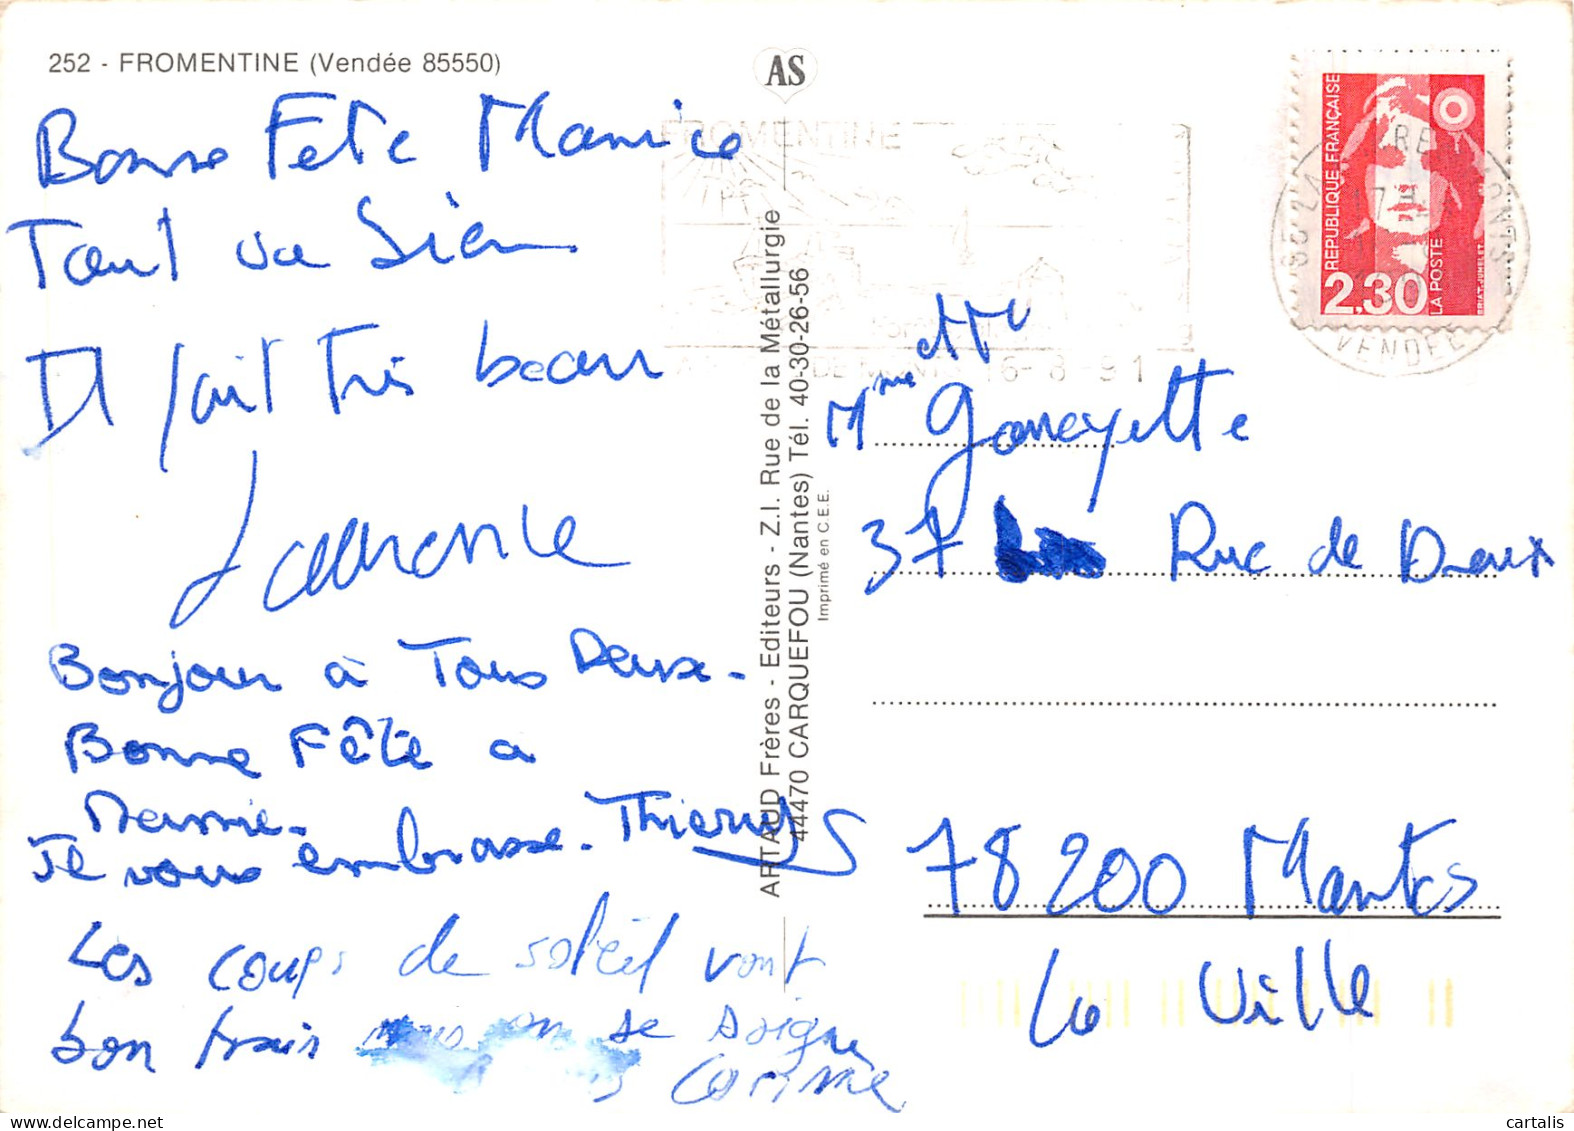 252 - FROMENTINE (Vendée 85550)
AS
Bonne Fete Mamico
Tout va bien
Il fait très beau
Laurence
Bonjour à Tous Deux.
Bonne Fête a
Mamie.
Je vous embrasse. Thierry
Les coups de soleil vont
bon train mais on se soigne
Corinne
ARTAUD Frères - Editeurs - Z.I. Rue de la Métallurgie
44470 CARQUEFOU (Nantes) Tél. 40-30-26-56
Imprimé en C.E.E.
FROMENTINE
DE MONTS 16-8-91
REPUBLIQUE FRANÇAISE
2,30
LA POSTE
85 LA BARRE MONTS
17H
VENDEE
Mr
Mme
37 Rue de Dreux
78200 Mantes
La Ville
cartalis
www.delcampe.net